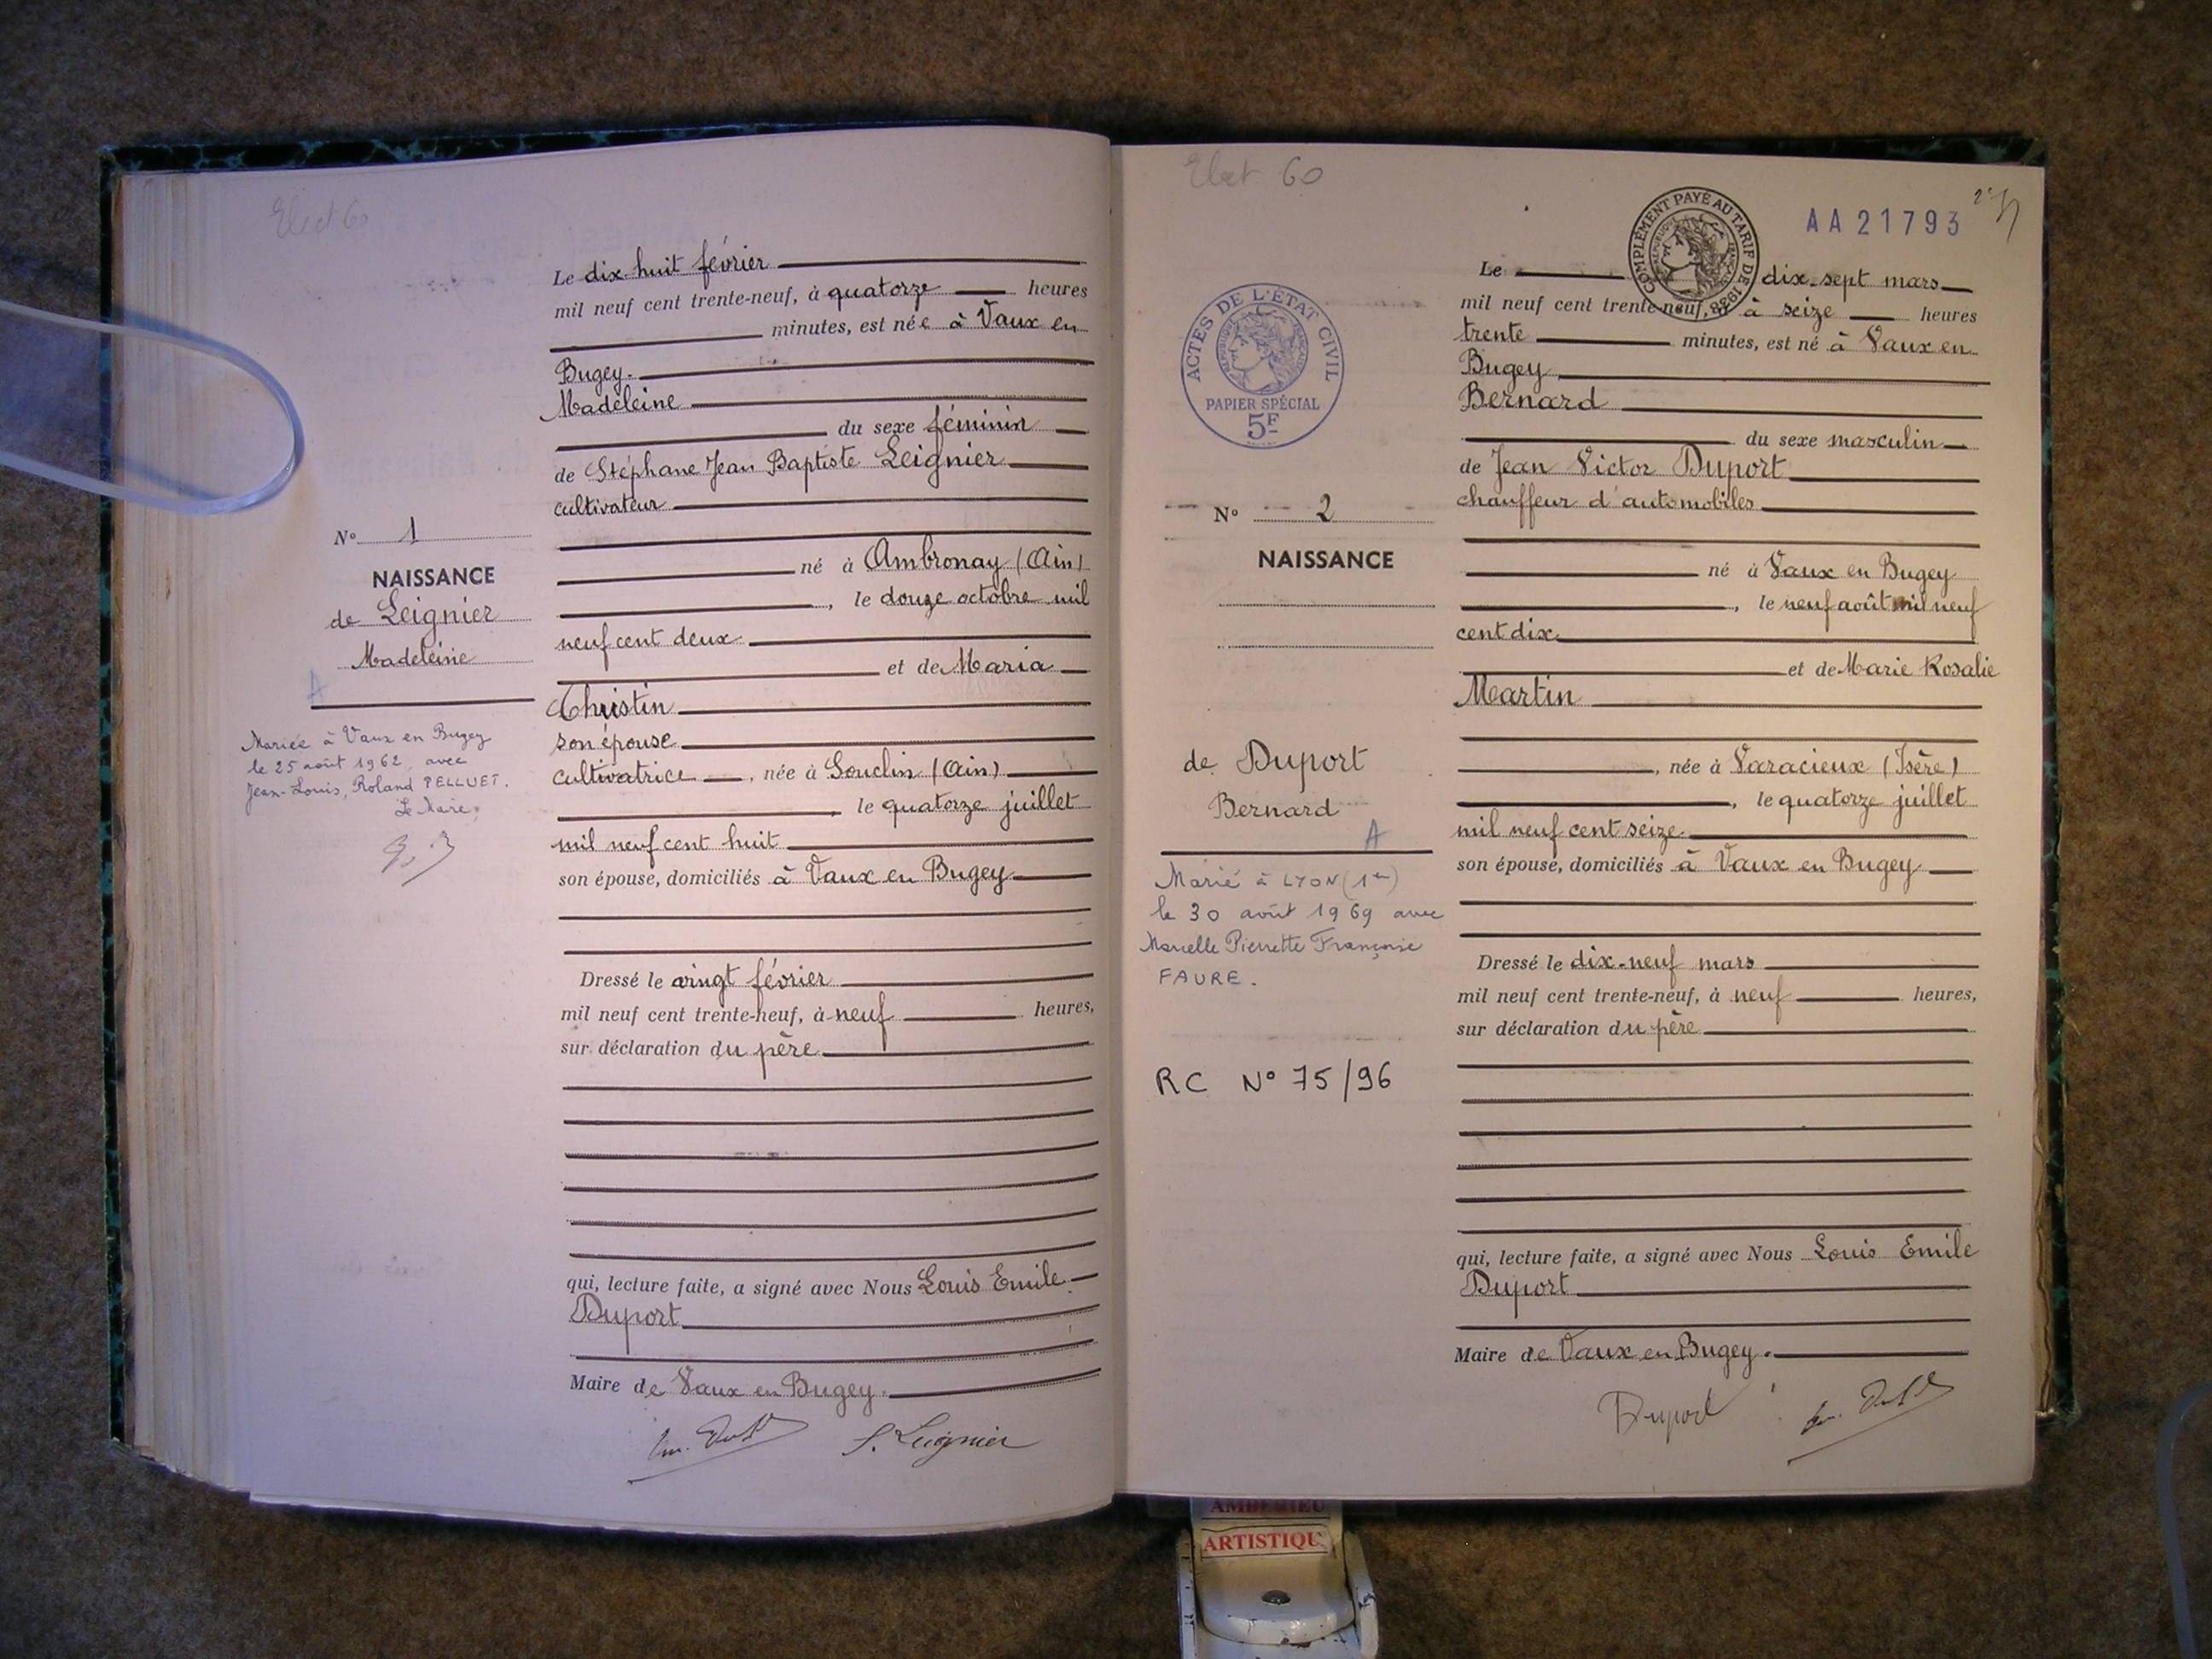 Elect 60
Le dix-huit février
mil neuf cent trente-neuf, à quatorze heures
minutes, est née à Vaux en
Bugey.
Madeleine
du sexe féminin
de Stéphane Jean Baptiste Leignier
cultivateur
né à Ambronay (Ain)
, le douze octobre mil
neuf cent deux
et de Maria
Christin
son épouse
cultivatrice, née à Souclin (Ain)
le quatorze juillet
mil neuf cent huit
son épouse, domiciliés à Vaux en Bugey
Dressé le vingt février
mil neuf cent trente-neuf, à neuf heures,
sur déclaration du père
qui, lecture faite, a signé avec Nous Louis Emile
Duport
Maire de Vaux en Bugey.
S. Leignier
N° 1
NAISSANCE
de Leignier
Madeleine
A
Mariée à Vaux en Bugey
le 25 août 1962, avec
Jean-Louis, Roland PELLUET.
Le Maire,
Elect 60
COMPLÉMENT PAYÉ AU TARIF DE 1938
AA21793
ACTES DE L'ÉTAT CIVIL
RÉPUBLIQUE FRANÇAISE
PAPIER SPÉCIAL
5F
Le dix-sept mars
mil neuf cent trente-neuf, à seize heures
trente minutes, est né à Vaux en
Bugey
Bernard
du sexe masculin
de Jean Victor Duport
chauffeur d'automobiles
né à Vaux en Bugey
, le neuf août mil neuf
cent dix
et de Marie Rosalie
Martin
, née à Varacieux (Isère)
, le quatorze juillet
mil neuf cent seize
son épouse, domiciliés à Vaux en Bugey
Dressé le dix-neuf mars
mil neuf cent trente-neuf, à neuf heures,
sur déclaration du père
qui, lecture faite, a signé avec Nous Louis Emile
Duport
Maire de Vaux en Bugey.
Duport
N° 2
NAISSANCE
de Duport
Bernard
A
Marié à LYON (1er)
le 30 août 1969 avec
Marcelle Pierrette Françoise
FAURE.
RC N° 75/96
AMBERIEU
ARTISTIQU